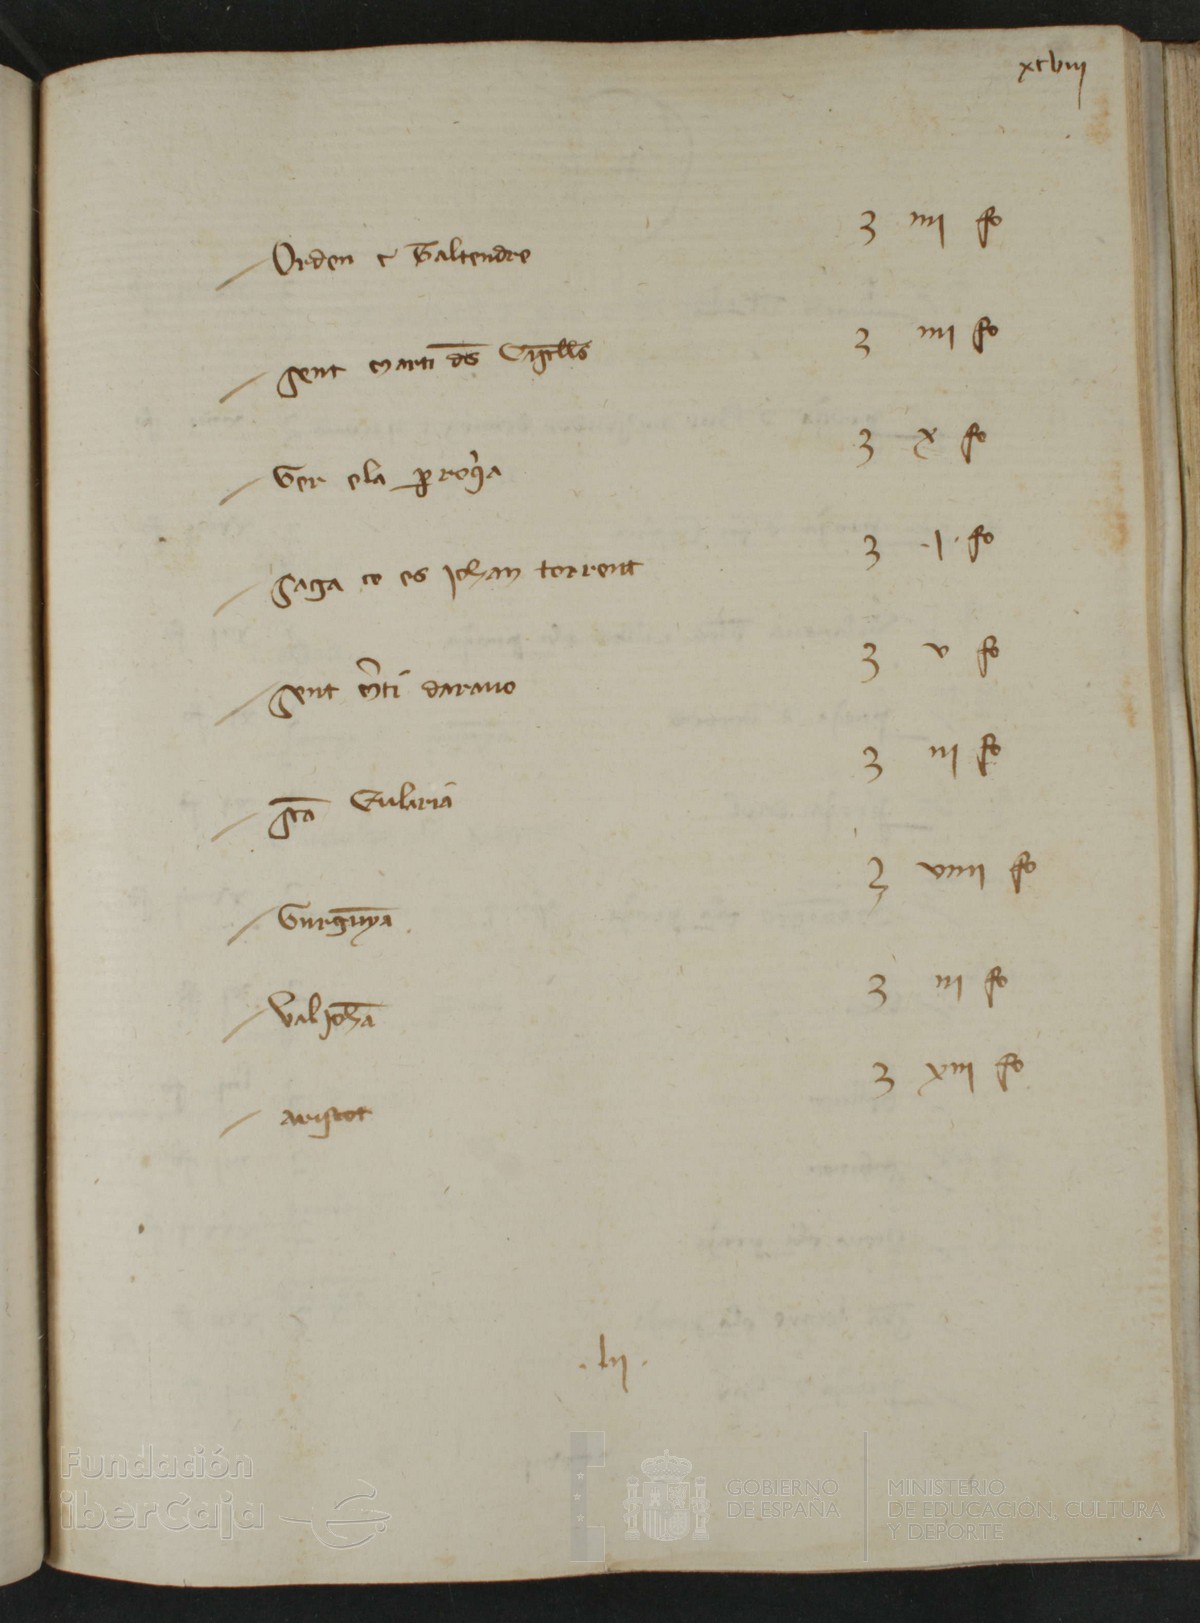 xcviii
Orden e Taltendre ʒ iiii fo
Sent marti ds̄ Cigͣlls̄ ʒ iiii fo
Ger ela ꝑroq̄a ʒ x fo
Saga ço es johan torrent ʒ ·i· fo
Sent m̄ti darauo ʒ v fo
Sc̄a Eularia ʒ iii fo
Gurgūya ʒ viiii fo
Valjoh̄a ʒ iii fo
aristot ʒ xiii fo
·lii·
Fundación
iberCaja
GOBIERNO
DE ESPAÑA
MINISTERIO
DE EDUCACIÓN, CULTURA
Y DEPORTE